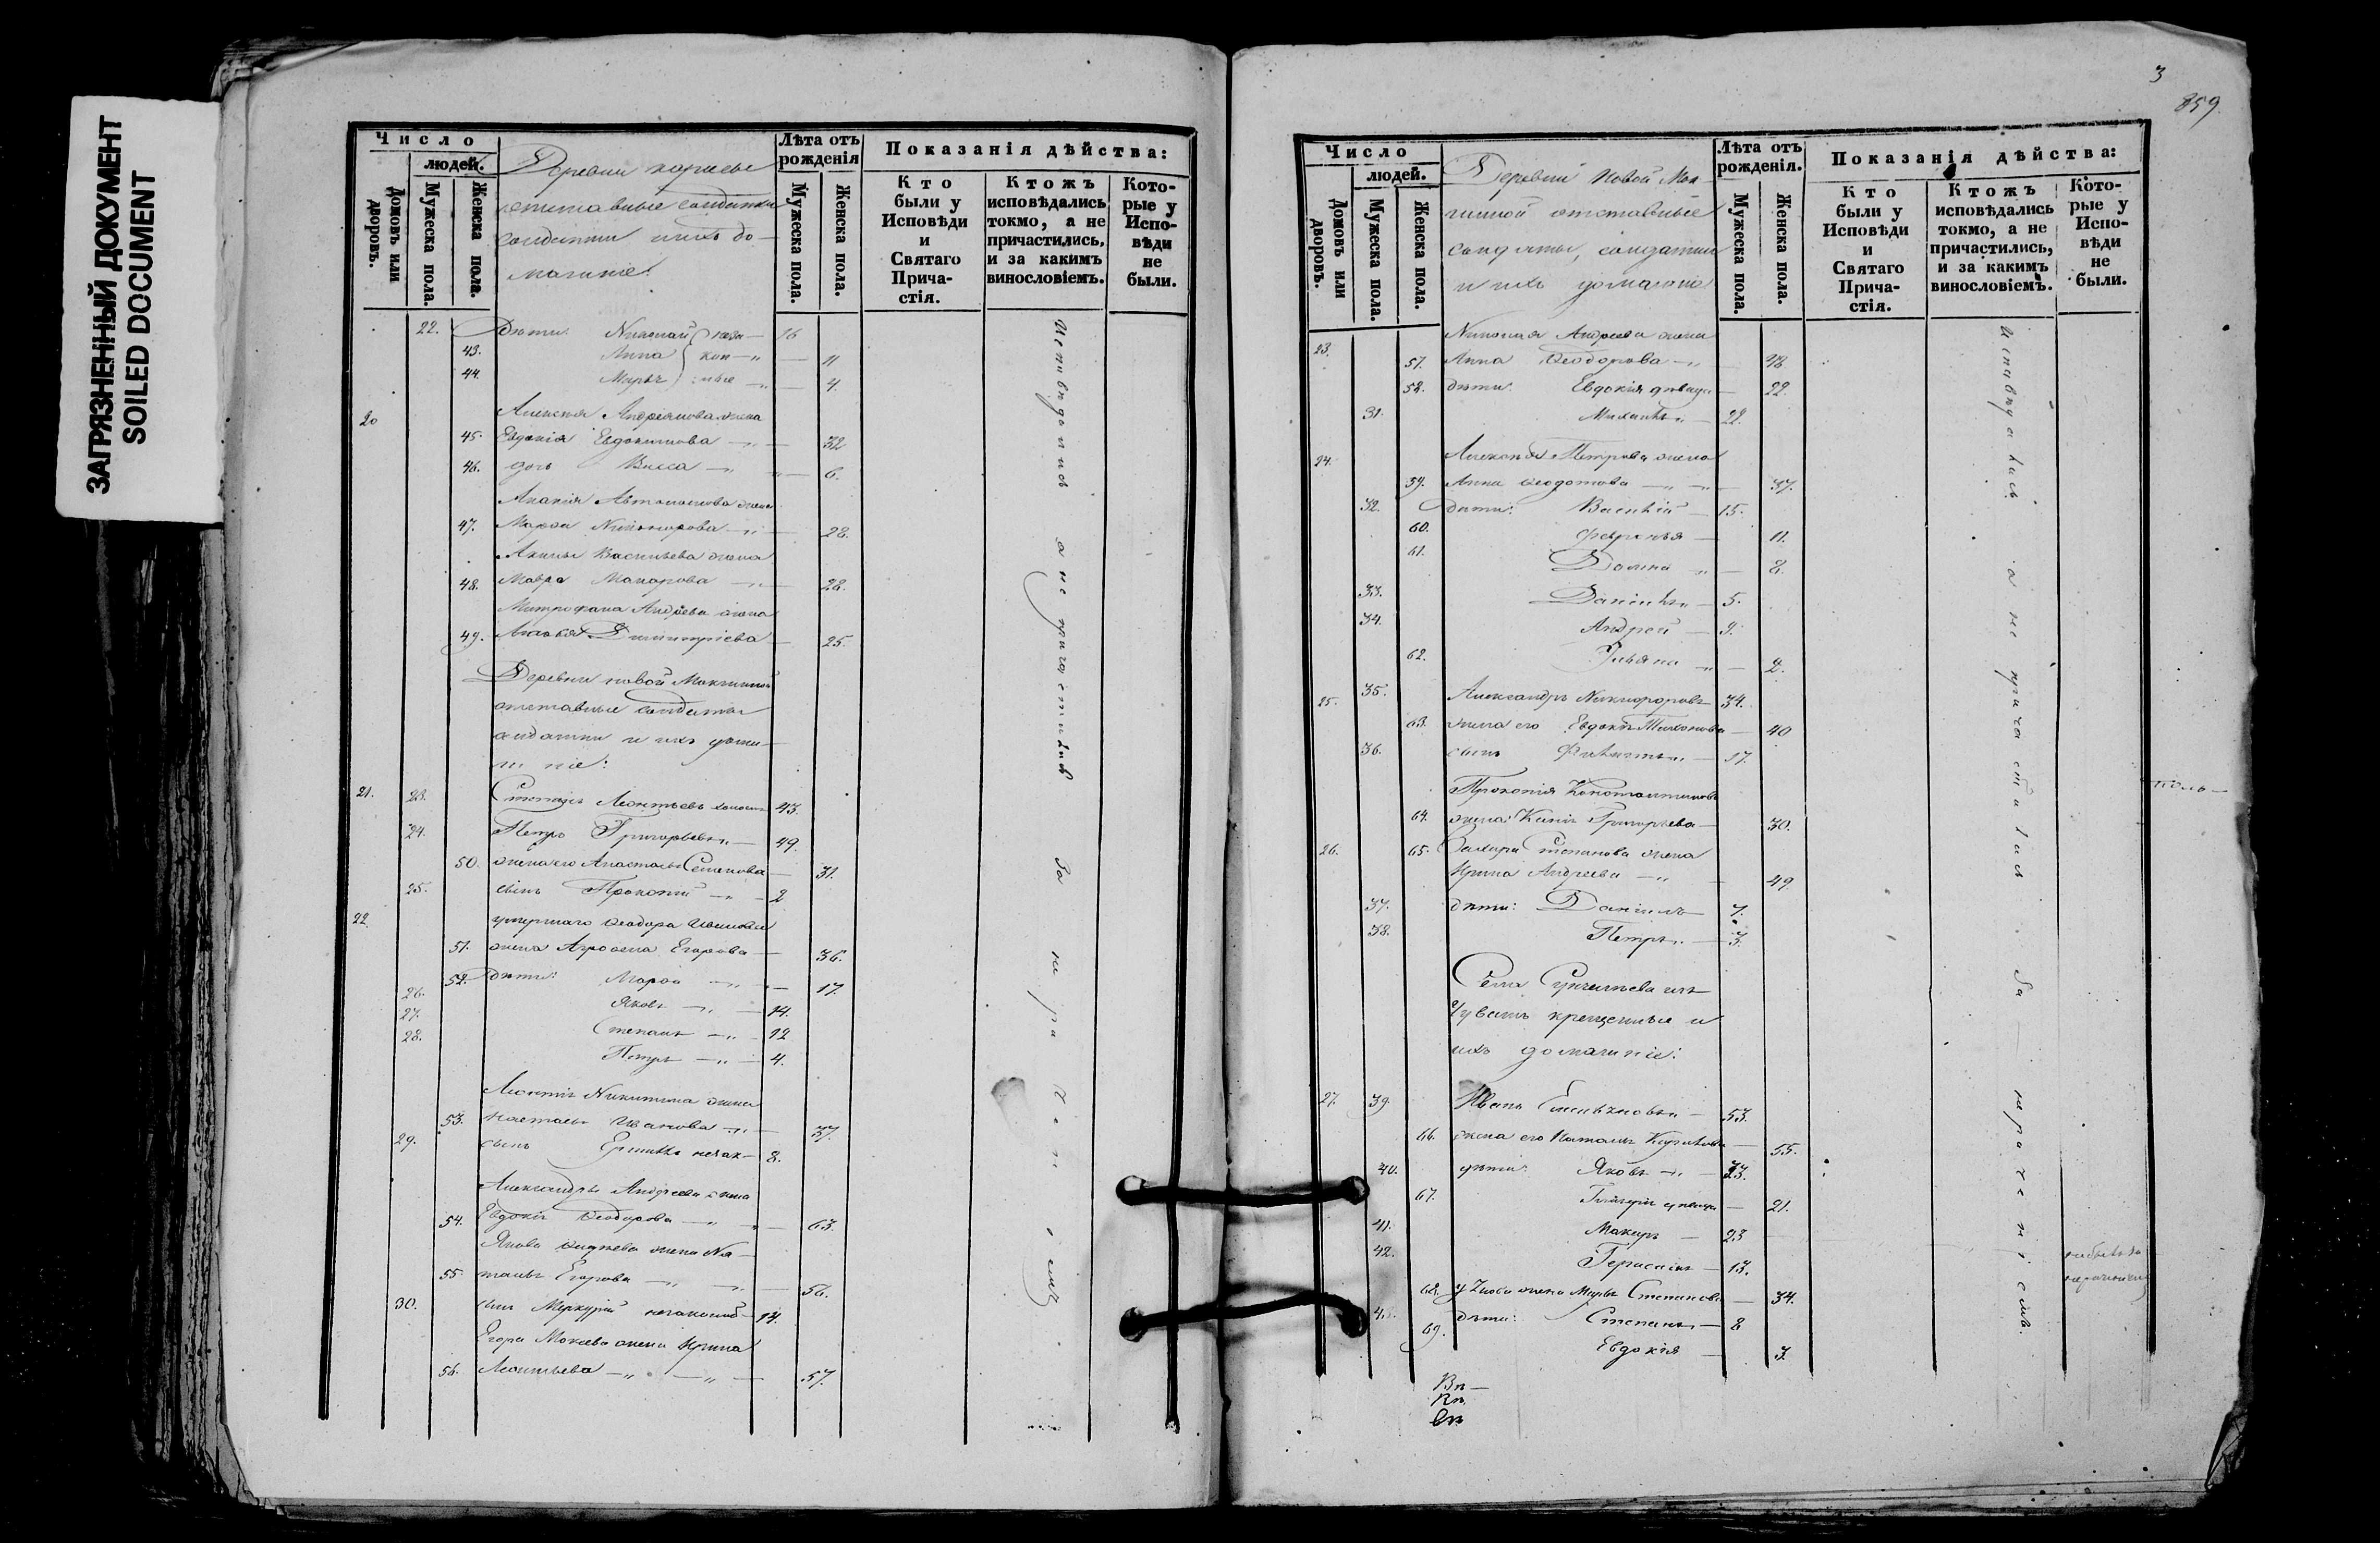 ЗАГРЯЗНЕННЫЙ ДОКУМЕНТ
SOILED DOCUMENT
Число
людей.
Домовъ или дворовъ.
Мужеска пола.
Женска пола.
Деревни
отставные солдатки
солдатки и ихъ до-
машніе:
Лѣта отъ рожденія
Мужеска пола.
Женска пола.
Показанія дѣйства:
Кто были у Исповѣди и Святаго Прича-стія.
Ктожъ исповѣдались токмо, а не причастились, и за какимъ винословіемъ.
Кото-рые у Испо-вѣди не были.
22. дѣти: Николай 16
43. Анна 11
44. Марья 4.
20 Алексѣя Андреянова жена
45. Евдокія Евдокимова 32
46. дочь Васса 6.
Ананія Автономова жена
47. Марѳа Никифорова 28.
Васильева жена
48. Мавра Макарова 28.
Митрофана Андреева жена
49. Димитріева 25.
Деревни новой Мокшиной
отставные солдаты
солдатки и ихъ домаш-
ніе:
21. 23. Степанъ Леонтьевъ холостъ 43.
24. Петръ Григорьевъ 49.
50. жена его Анастасья Семенова 31.
25. сынъ Прокопій 2
22 умершаго Ѳеодора Иванова
51. жена Агрофена Егорова 36.
52. дѣти: Марѳа 17.
26. Яковъ 14.
27. Степанъ 12
28. Петръ 4.
Леонтія Никитина жена
53. Настасья Иванова 37.
29. сынъ Ермилъ незак- 8.
Александра Андреева жена
54. Евдокія Ѳеодорова 63.
Якова жена На-
55. талья Егорова 56.
30. сынъ Меркурій незаконнo 14.
Егора Мокѣева жена Ирина
56. Леонтьева 57.
исповѣдались а не причастились за нераченіемъ
3
859
Число
людей.
Домовъ или дворовъ.
Мужеска пола.
Женска пола.
Деревни Новой Мок-
шиной отставные
солдаты, солдатки
и ихъ домашніе
Лѣта отъ рожденія.
Мужеска пола.
Женска пола.
Показанія дѣйства:
Кто были у Исповѣди и Святаго Прича-стія.
Ктожъ исповѣдались токмо, а не причастились, и за какимъ винословіемъ.
Кото-рые у Испо-вѣди не были.
23. Николая Андреева жена
57. Анна Ѳеодорова 48
58. дѣти: Евдокія дѣвица 22.
31. Михаилъ 22.
24. Алексѣя Петрова жена
59. Анна Ѳедотова 37.
32. дѣти: Василій 15.
60. Февронья 11.
61. Домна 8.
33. Даніилъ 5.
34. Андрей 9.
62. Ульяна 2.
25. 35. Александръ Никифоровъ 34.
63. жена его Евдокія Тихонова 40
36. сынъ Филиппъ 17.
Прокопія Константинова
64. жена: Ксенія Григорьева 30.
26. 65. Захара Степанова жена
Ирина Андреева 49
37. дѣти: Даніилъ 7.
38. Петръ 3.
Села Сунчелѣева изъ
Чувашъ крещенные и
ихъ домашніе:
27. 39 Иванъ Емельяновъ 53.
66. жена его Наталья Кирилова 55.
40. дѣти: Яковъ 33.
67. Гликерія дѣвица 21.
41. Макаръ 23
42. Герасимъ 13.
68. у Якова жена Марья Степанова 34.
43. дѣти: Степанъ 8
69. Евдокія 3.
исповѣдались а не причастились за нераченіемъ.